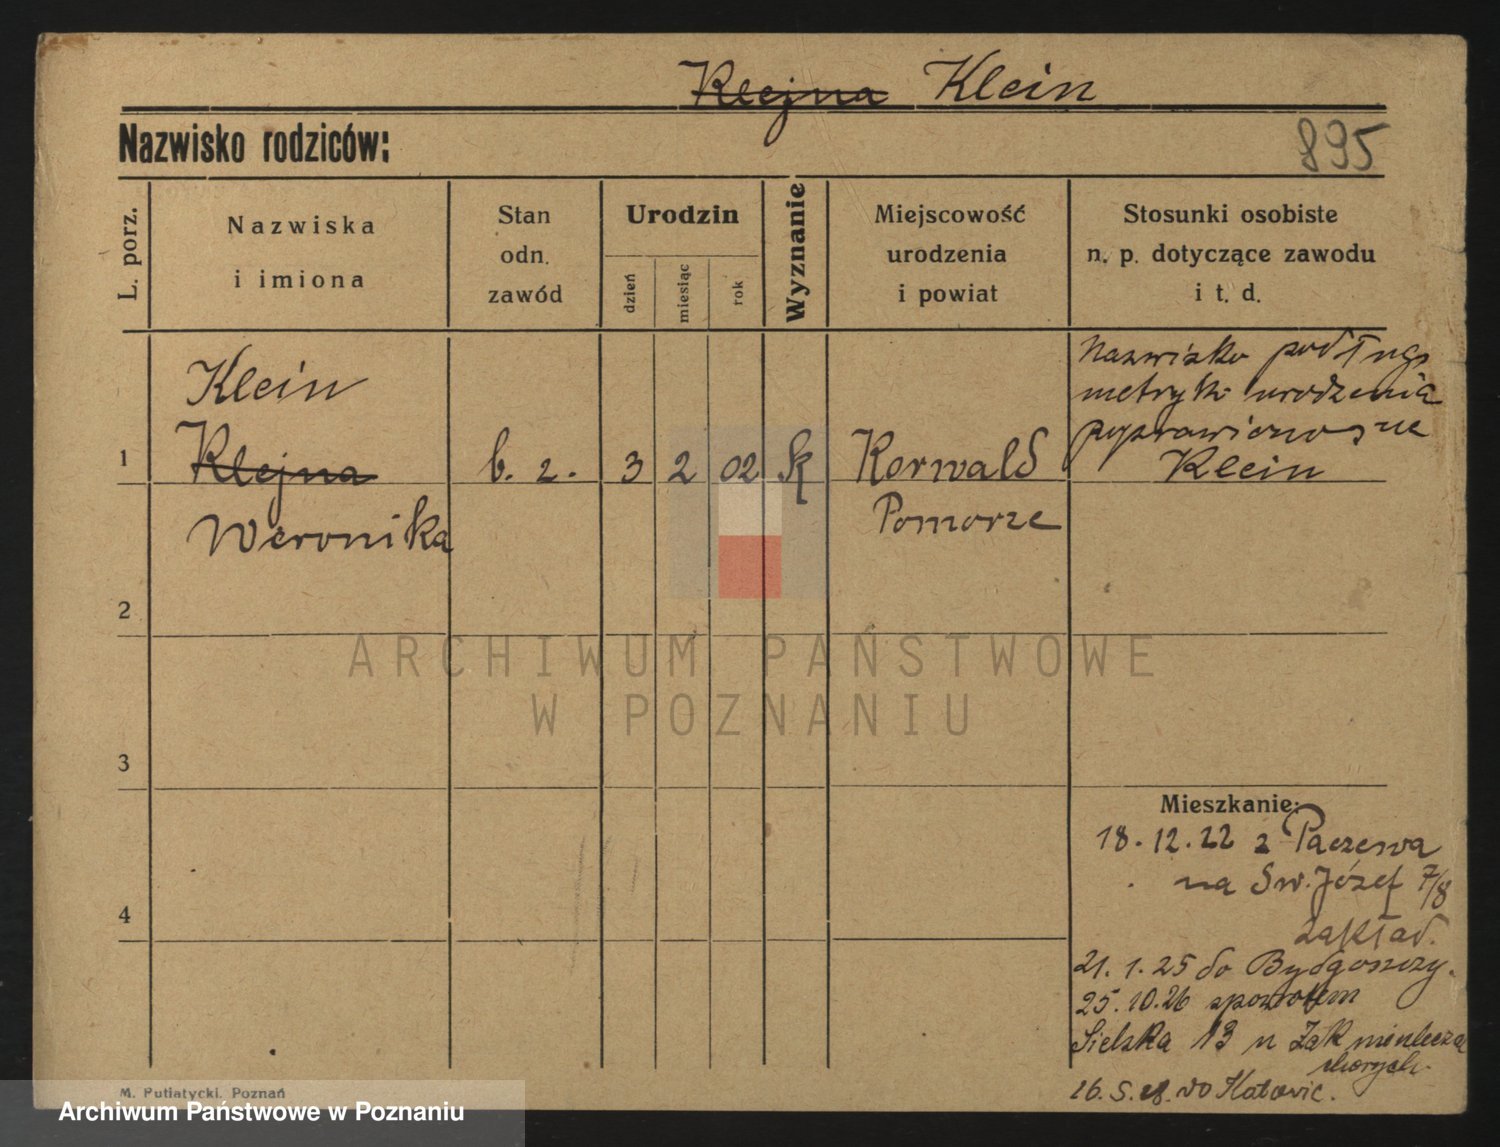 Klejna Klein
Nazwisko rodziców:
895
L. porz.
Nazwiska
i imiona
Stan
odn.
zawód
Urodzin
dzień
miesiąc
rok
Wyznanie
Miejscowość
urodzenia
i powiat
Stosunki osobiste
n. p. dotyczące zawodu
i t. d.
Klein
1 Klejna b. z. 3 2 02 k Korwald
Weronika Pomorze
Nazwisko podług
metryki urodzenia
poprawiono na
Klein
2
ARCHIWUM PAŃSTWOWE
W POZNANIU
3
Mieszkanie:
18.12.22 z Paczewa
na Św. Józef 7/8
zakład.
4
21.1.25 do Bydgoszczy.
25.10.26 spowrotem
Sielska 13 u Zak
chorych.
16.5. do Katowic.
M. Putiatycki, Poznań
Archiwum Państwowe w Poznaniu